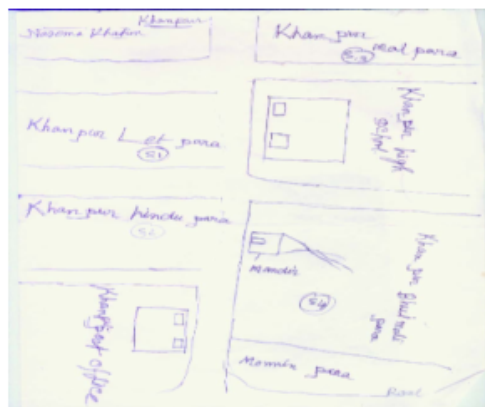 Khanpur
Nasima Khatun
Khanpur
mal para
S.3
Khanpur Let para
S1
Khanpur high school
Khanpur hindu para
S2
Mandir
S4
Khanpur
para
Khanpur
Post office
Momin para